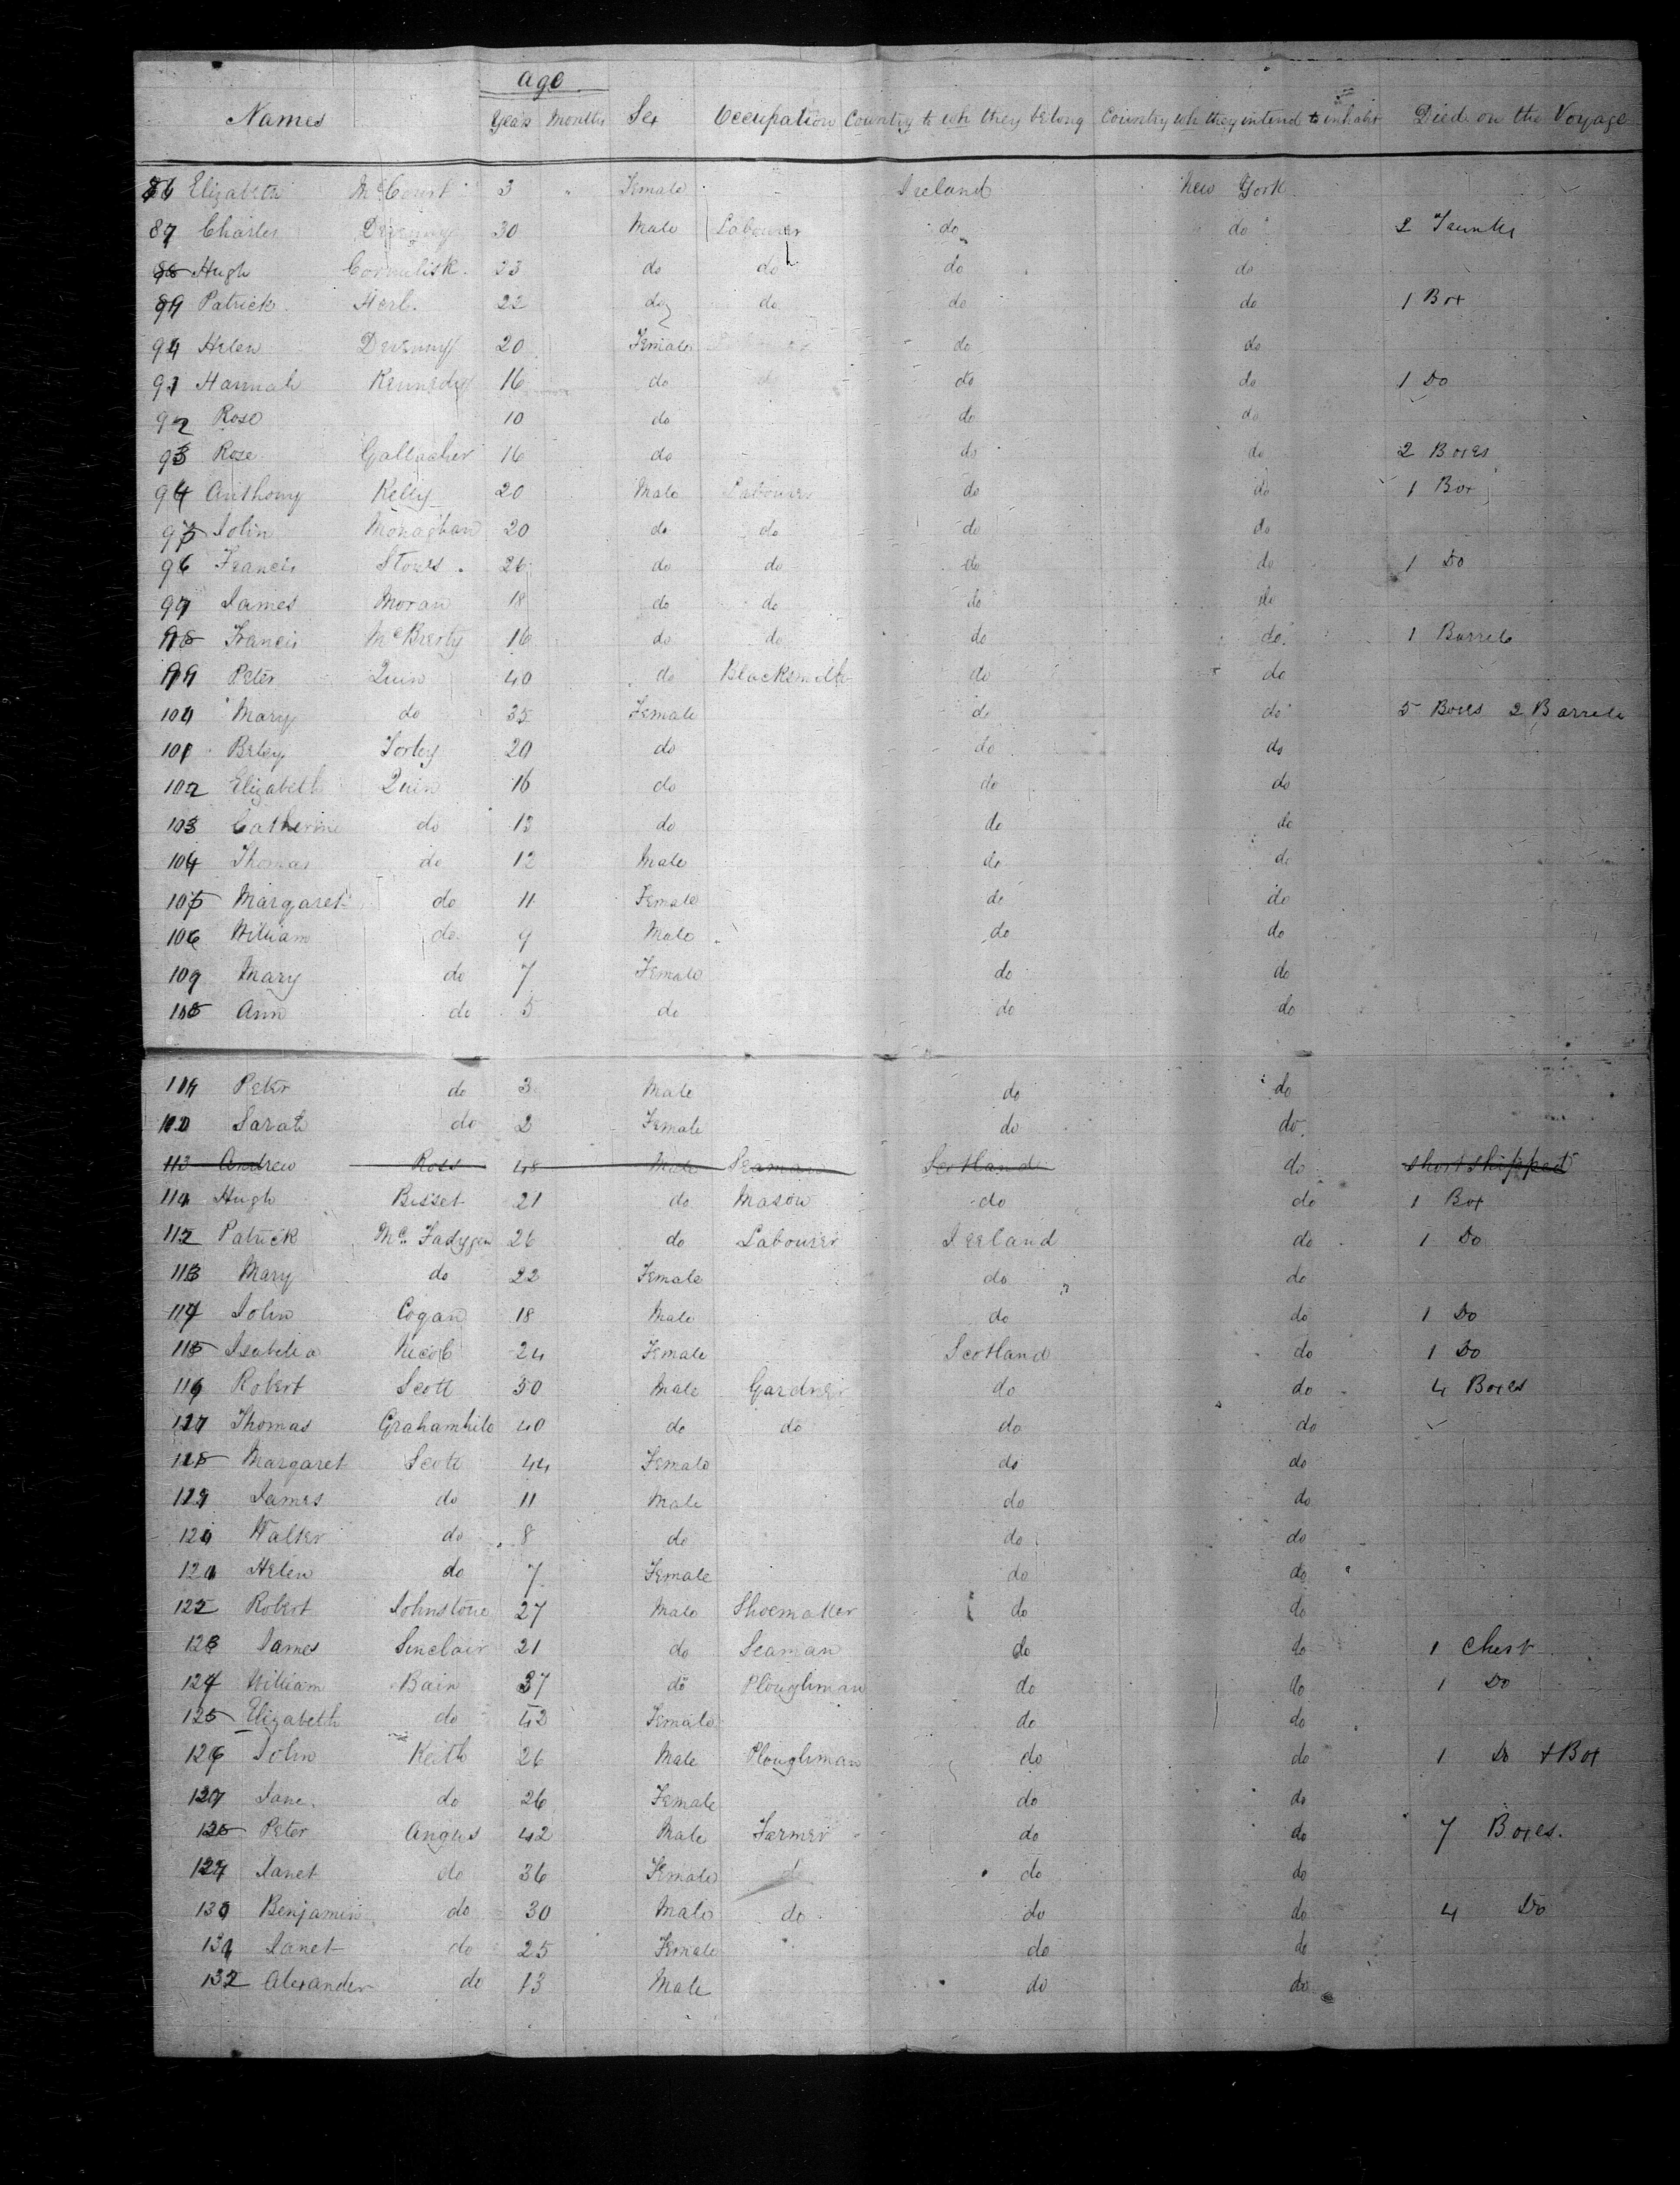 age
Names Years Months Sex Occupation Country to wh they belong Country wh they intend to inhabit Died on the Voyage
86 Elizabeth McCourt 3 " Female Ireland New York
87 Charles Devenny 30 Male Labourer do do 2 Trunks
88 Hugh 23 do do do do
89 Patrick 22 do do do do 1 Box
90 Helen Devenny 20 Female do do
91 Hannah Kennedy 16 do do do 1 Do
92 Rose 10 do do do
93 Rose Gallacher 16 do do do 2 Boxes
94 Anthony Kelly 20 Male Labourer do do 1 Box
95 John Monaghan 20 do do do do
96 Francis 26 do do do do 1 Do
97 James Moran 18 do do do do
98 Francis McBrerty 16 do do do do 1 Barrele
99 Peter Quin 40 do Blacksmith do do
100 Mary do 35 Female do do 5 Boxes 2 Barrele
101 Torley 20 do do do
102 Elizabeth Quin 16 do do do
103 Catherine do 13 do do do
104 Thomas do 12 Male do do
105 Margaret do 11 Female do do
106 William do 9 Male do do
107 Mary do 7 Female do do
108 Ann do 5 do do do
109 Peter do 3 Male do do
110 Sarah do 2 Female do do
113 Andrew Ross 48 Male Seaman Scotland do short shipped
111 Hugh Bisset 21 do Mason do do 1 Box
112 Patrick Mc Fadygen 26 do Labourer Ireland do 1 Do
113 Mary do 22 Female do do
114 John Cogan 18 Male do do 1 Do
115 Isabella Nicol 24 Female Scotland do 1 Do
116 Robert Scott 50 Male Gardner do do 4 Boxes
117 Thomas Grahamhile 40 do do do do
118 Margaret Scott 44 Female do do
119 James do 11 Male do do
120 Walter do 8 do do do
121 Helen do 7 Female do do
122 Robert Johnstone 27 Male Shoemaker do do
123 James Sinclair 21 do Seaman do do 1 Chest
124 William Bain 37 do Ploughman do do 1 Do
125 Elizabeth do 42 Female do do
126 John Keith 26 Male Ploughman do do 1 Do & Box
127 Jane do 26 Female do do
128 Peter Angus 42 Male Farmer do do 7 Boxes.
129 Janet do 36 Female do do do
130 Benjamin do 30 Male do do do 4 Do
131 Janet do 25 Female do do
132 Alexander do 13 Male do do